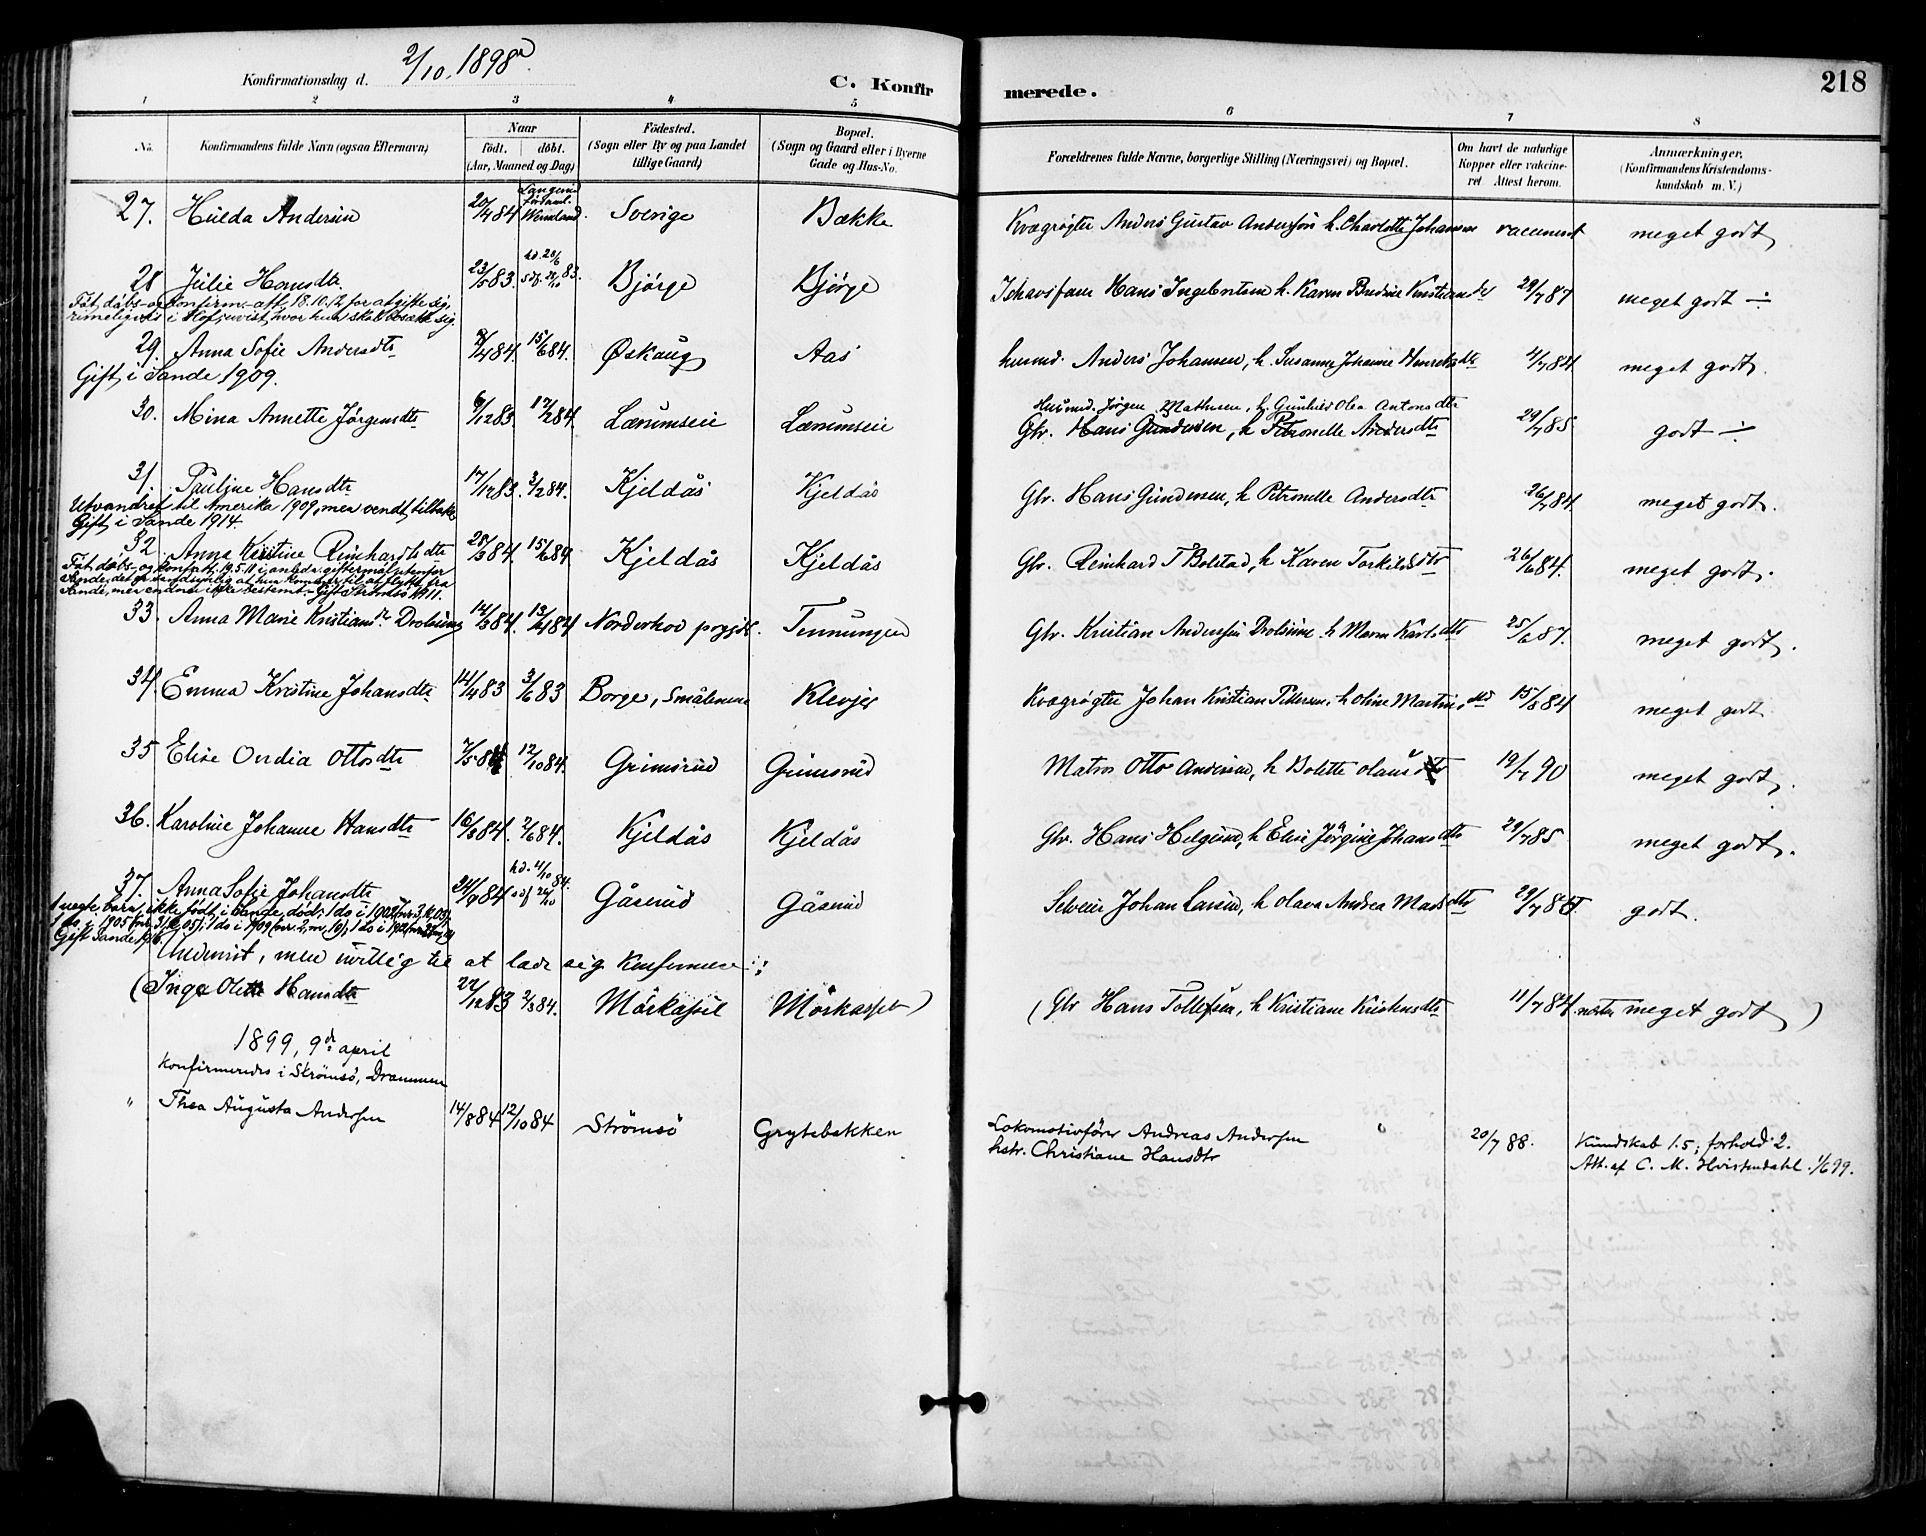 2/10. 1898
Konfirmationsdag d.
C. Konfir
merede.
218
1 2 3 4 5 6 7 8
No. Konfirmandens fulde Navn (ogsaa Efternavn) Naar født. døbt. (Aar, Maaned og Dag) Fødested. (Sogn eller By og paa Landet tillige Gaard) Bopæl. (Sogn og Gaard eller i Byerne Gade og Hus-No. Forældrenes fulde Navne, borgerlige Stilling (Næringsvei) og Bopæl. Om havt de naturlige Kopper eller vakcineret. Attest herom. Anmærkninger. (Konfirmandens Kristendomskundskab m. V.)
27. Hilda Andersen 20/4 84 Sverige Bække Kvægrøgter Anders Gustav Andersson h. Charlotte Johansen meget godt
28 Julie Hansdtr. 23/5 83. Bjørge Bjørge Ishavsfarer Hans Ingebretsen h. Karen Bredine 29/7 87 meget godt ÷
Fåt dåbs- og konfirm.-att. 18.10.12 for at gifte sig,
hvor hun skal bosætte sig.
29. Anna Sofie Andersdtr 84. 15/6 84. Øskaug Aas husmd. Anders Johansen, h. Susanne Johanne Henriksdtr 4/7 84 meget godt.
Gift i Sande 1909.
30. Mina Annette Jørgensdtr 6/12 83. 17/2 84. Lærumseie Lærumseie Husmd. Jørgen Mathisen, h. Gunhild Olea Antonsdtr
Gbr. Hans Gundersen, h Petronelle Andersdtr 29/7 85 godt ÷
31. Pauline Hansdtr 17/12 83. 3/2 84. Kjeldås Kjeldås Gbr. Hans Gundersen, h Petronelle Andersdtr 26/7 84 meget godt.
Utvandret til Amerika 1909, men vendt tilbake
Gift i Sande 1914.
32. Anna Kristine Reinhardtsdtr 28/3 84. 15/6 84. Kjeldås Kjeldås Gbr. Reinhard T Bolstad, h Karen Torkildsdtr 26/6 84. meget godt.
Fåt dåbs- og konf.att. 19.5.11 i anledn. giftermål utenfor
Sande, det er sandsynlig at hun kommer til at flytte fra
Sande, men endnu ikke bestemt. - Gift Strømsø 1911.
33. Anna Marie Kristiansdr Drolsum 14/3 84. 13/4 84 Norderhov prgjd. Tennungen Gbr. Kristian Andersen Drolsum h Maren Karlsdtr 25/6 87. meget godt.
34. Emma Kristine Johansdtr 14/4 83 3/6 83 Borge, Smålenene Klevjer Kvægrøgter Johan Kristian Petersen, h Oline Martinsdtr 15/8 84 meget godt
35 Elise Ondia Ottosdtr 7/5 84 12/10 84. Grimsrud Grimsrud Matros Otto Andersen, h Bolette Olausdtr 19/7 90 meget godt.
36. Karoline Johanne Hansdtr 16/3 84. 2/6 84. Kjeldås Kjeldås Gbr. Hans Helgesen, h Elise Jørgine Johansdtr 29/7 85 meget godt.
37. Anna Sofie Johansdtr 24/9 84 Gåserud Gåserud Selveier Johan Larsen, h Olava Andrea Madsdtr 29/7 85 godt.
1 uegte barn ikke født i Sande, død;
Gift Sande 1916.
Undervist, men uvillig til at lade sig konfirmere:
(Inga Olette Hansdtr 22/12 83 2/3 84. Mörkassel Mörkassel) (Gbr Hans Tollefsen, h Kristiane Kristensdtr 11/7 84. næsten meget godt)
1899, 9de april
Konfirmeredes i Strømsö, Drammen
" Thea Augusta Andersen 14/8 84 12/10 84 Strömsö Grytebakken Lokomotivfører Andreas Andersen 20/7 88. Kundskab 1.5; forhold 2.
hstr. Christiane Hansdtr Att. af C. M. Hvistendahl. 1/6 99.